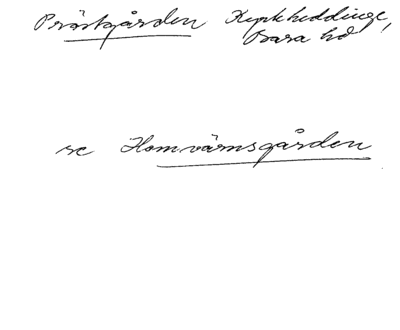 Prästgården Kyrkheddinge,
Bara hd
se Hemvärnsgården